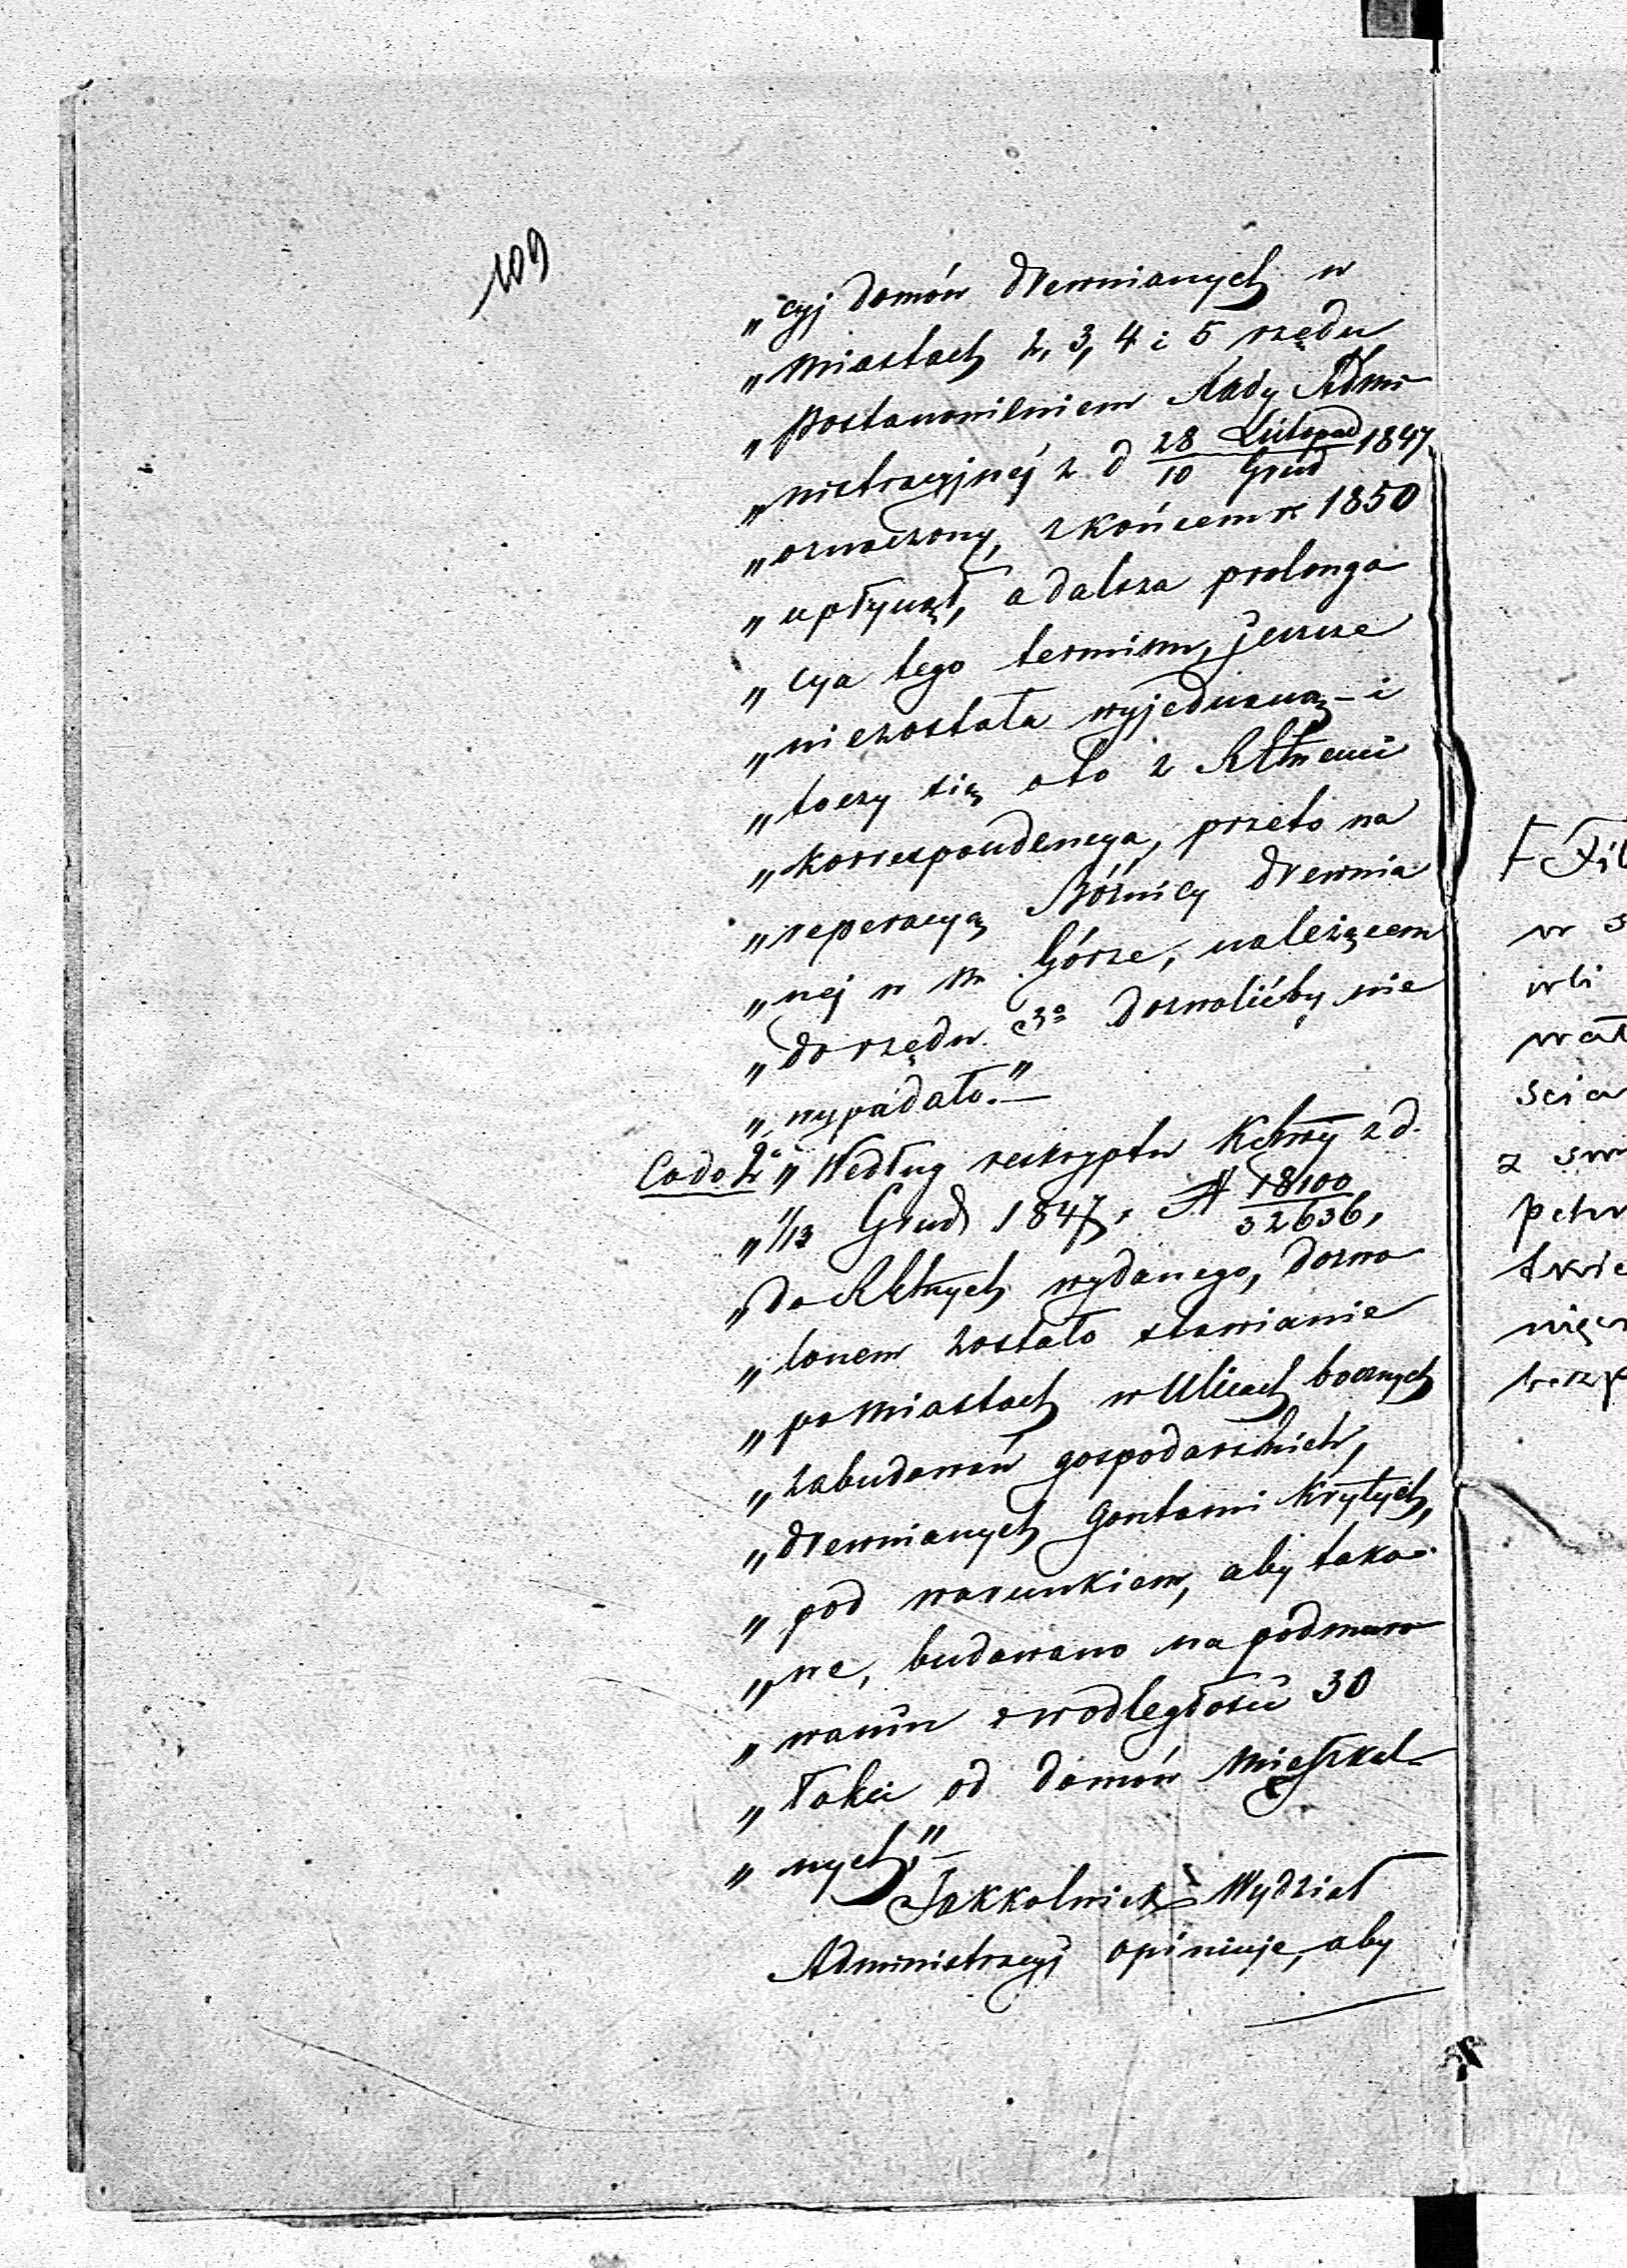 109
„cyj domów drewnianych w
„miastach 2, 3, 4 i 5 rzędu
„postanowieniem Rady Admi-
„nistracyjnéj z d 28 Listopad/10 Grud 1847
„oznaczony, z końcem r. 1850
„upłynął, a dalsza prolonga
„cya tego terminu, jeszcze
„niezostała wyjednaną – i
„toczy się oto z
„korrespondencya, przeto na
„reperacyą Bóżnicy drewnia
„nej w m Górze, należącem
„do rzędu 3º dozwolićby nie
„wypadało."–
Co do 2º „Według reskryptu z d.
„1/13 Grud 1847, N 18100/32636,
„do wydanego, dozwo
„lonem zostało stawianie
„po miastach w Ulicach bocznych
„zabudowań gospodarskich,
„drewnianych gontami krytych,
„pod warunkiem, aby tako-
„we, budowano na podmuro
„waniu i w odległości 30
„łokci od domów mieszkal-
„nych,"–
Jakkolwiek Wydział
Administracyj opiniuje, aby